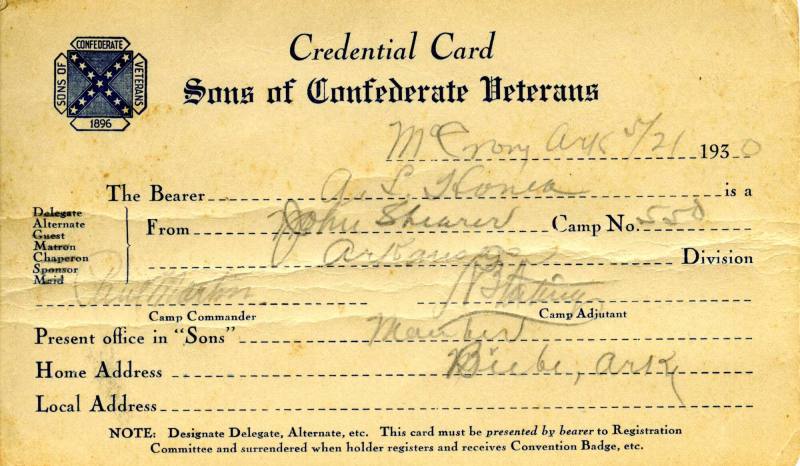 CONFEDERATE
SONS OF
VETERANS
1896
Credential Card
Sons of Confederate Veterans
Ark 5/21 1930
The Bearer A. L. is a
Delegate
Alternate
Guest
Matron
Chaperon
Sponsor
Maid
From John Shearer Camp No. 550
Arkansas Division
Camp Commander
Camp Adjutant
Present office in "Sons" Member
Home Address Beebe, Ark
Local Address
NOTE: Designate Delegate, Alternate, etc. This card must be presented by bearer to Registration
Committee and surrendered when holder registers and receives Convention Badge, etc.